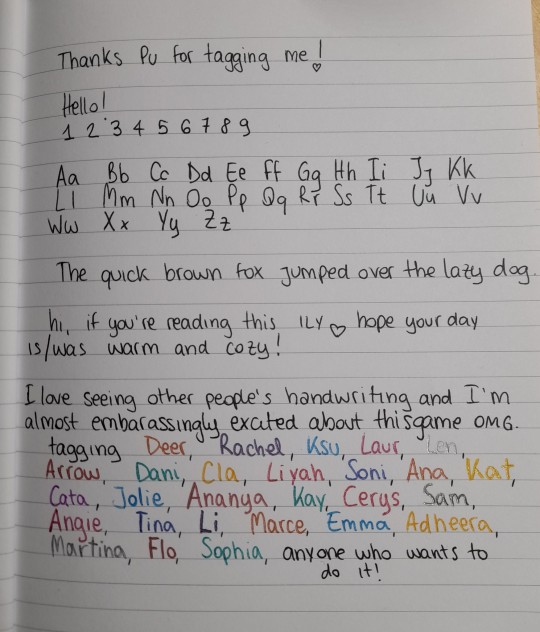 Thanks Pu for tagging me! ♡
Hello!
1 2 3 4 5 6 7 8 9
Aa Bb Cc Dd Ee Ff Gg Hh Ii Jj Kk
Ll Mm Nn Oo Pp Qq Rr Ss Tt Uu Vv
Ww Xx Yy Zz
The quick brown fox jumped over the lazy dog.
hi, if you're reading this ILY ♡ hope your day
is/was warm and cozy!
I love seeing other people's handwriting and I'm
almost embarassingly excited about this game OMG.
tagging Deer, Rachel, Ksu, Laur, Len,
Arrow, Dani, Cla, Liyah, Soni, Ana, Kat,
Cata, Jolie, Ananya, Kay, Cerys, Sam,
Angie, Tina, Li, Marce, Emma, Adheera,
Martina, Flo, Sophia, anyone who wants to
do it!